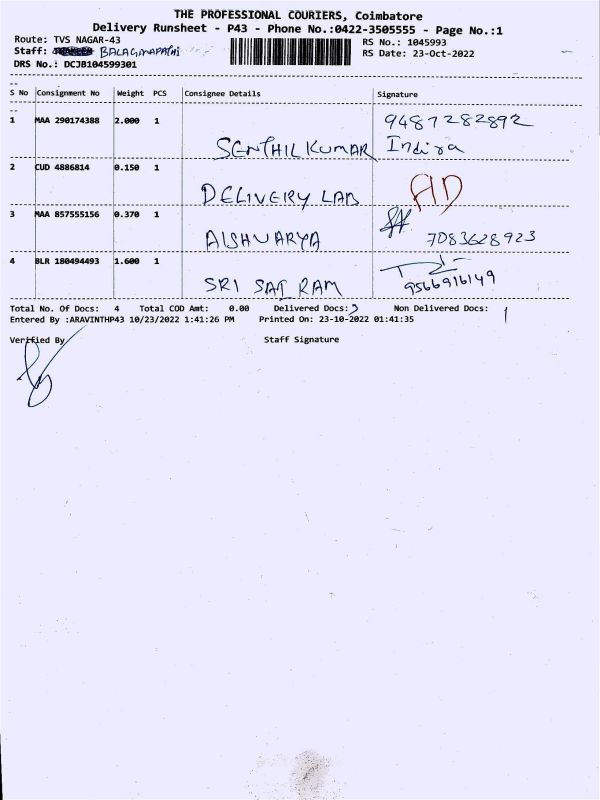 THE PROFESSIONAL COURIERS, Coimbatore
Delivery Runsheet - P43 - Phone No.:0422-3505555 - Page No.:1
Route: TVS NAGAR-43 RS No.: 1045993
Staff: BALAGANAPATHI RS Date: 23-Oct-2022
DRS No.: DCJB104599301
S No Consignment No Weight PCS Consignee Details Signature
1 MAA 290174388 2.000 1 9487282892
SENTHIL KUMAR Indira
2 CUD 4886814 0.150 1
DELIVERY LAB
3 MAA 857555156 0.370 1
AISHVARYA 7083628923
4 BLR 180494493 1.600 1
SRI SAI RAM 9566916149
Total No. Of Docs: 4 Total COD Amt: 0.00 Delivered Docs: 3 Non Delivered Docs: 1
Entered By :ARAVINTHP43 10/23/2022 1:41:26 PM Printed On: 23-10-2022 01:41:35
Verified By Staff Signature